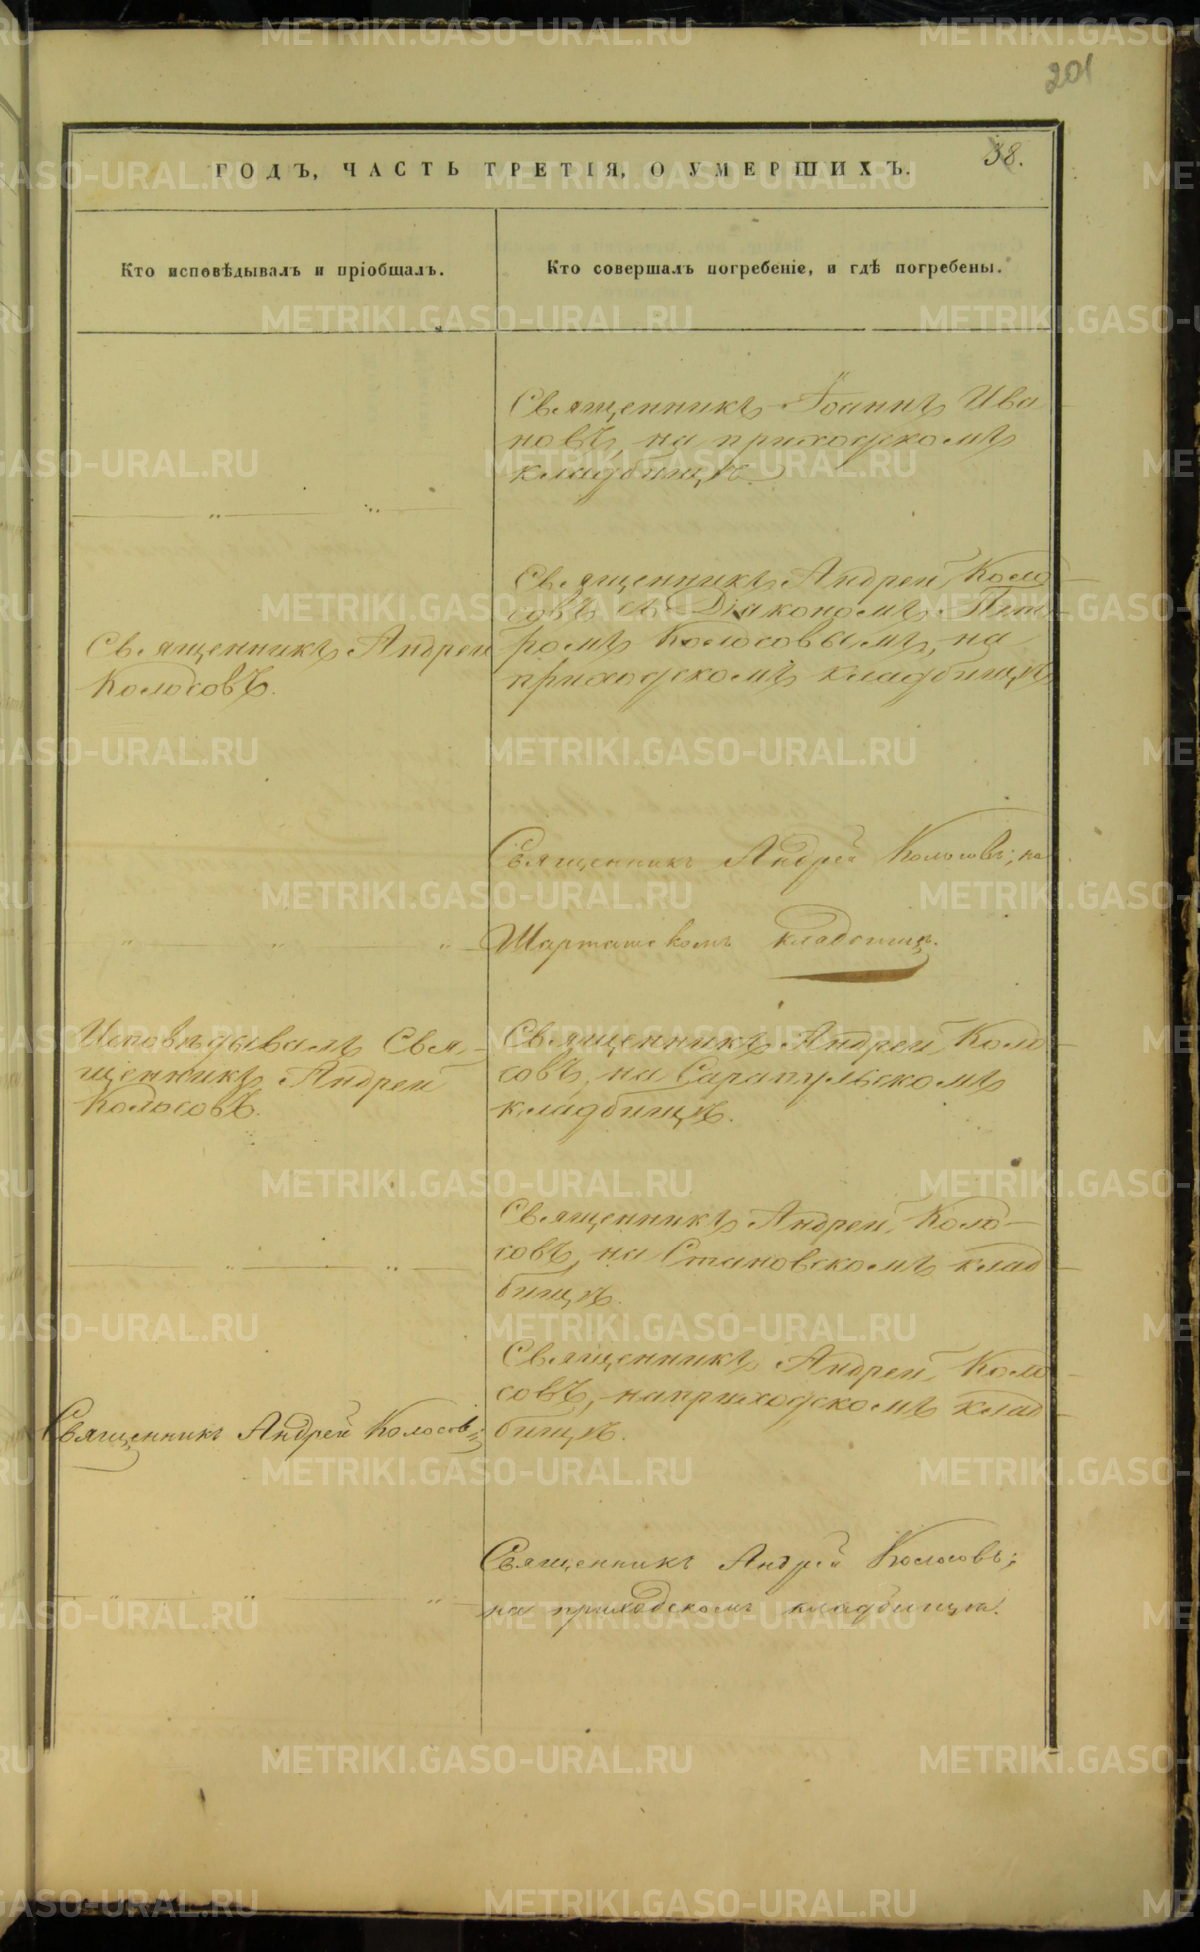 201
ГОДЪ, ЧАСТЬ ТРЕТІЯ, О УМЕРШИХЪ.
38.
Кто исповѣдывалъ и пріобщалъ.
Кто совершалъ погребеніе, и гдѣ погребены.
Священникъ Іоаннъ Ива
новъ, на приходскомъ
кладбищѣ.
Священникъ Андрей
Колосовъ.
Священникъ Андрей Коло
совъ съ Діакономъ Пет
ромъ Колосовымъ, на
приходскомъ кладбищѣ
Священникъ Андрей Колосовъ; на
Шарташскомъ кладбищѣ.
Исповѣдывалъ Свя
щенникъ Андрей
Колосовъ.
Священникъ Андрей Коло
совъ, на Сарапульскомъ
кладбищѣ.
Священникъ Андрей Коло
совъ, на Становскомъ клад
бищѣ.
Священникъ Андрей Колосовъ;
Священникъ Андрей Коло
совъ, на приходскомъ клад
бищѣ.
Священникъ Андрей Колосовъ;
на приходскомъ кладбищѣ.
METRIKI.GASO-URAL.RU